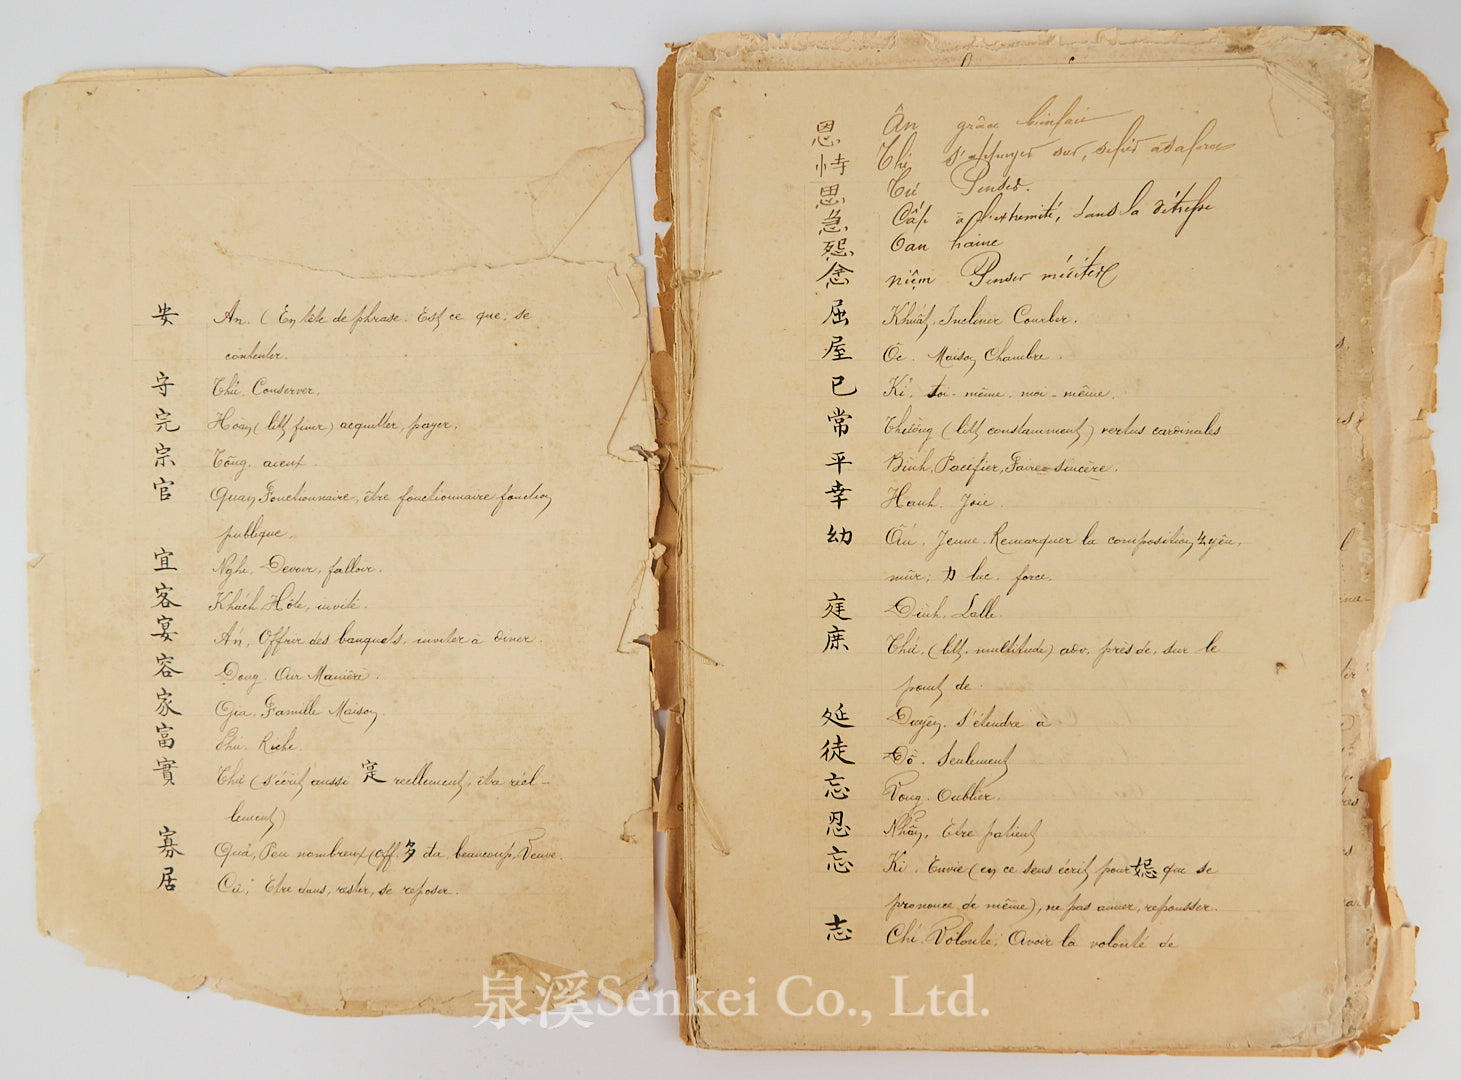 安 An. (En tête de phrase: Est ce que; se
contenter.
守 Thủ. Conserver.
完 Hoàn (litt finir) acquitter, payer.
宗 Tông. aieux.
官 Quan, Fonctionnaire, être fonctionnaire fonction
publique.
宜 Nghi. Devoir, falloir.
客 Khách Hôte, invité.
宴 Offrir des banquets, inviter à diner.
容 Dong. Air Manière.
家 Gia. Famille Maison
富 Phú. Riche.
實 (s'écrit aussi 寔 reellement, être réel-
lement)
寡 Quả, Peu nombreux (off. 多 đa, beaucoup, Veuve.
居 Cư, Etre dans, rester, se reposer.
恩 Ân grâce bienfait
恃 Thị s'appuyer sur, se fier à sa force
思 Tư Penser.
急 Cấp à l'extremité, dans la détresse
怨 Oan haine
念 niệm Penser méditer
屈 Khuất, Incliner Courber.
屋 Ốc. Maison Chambre.
已 Kỉ, toi-même, moi-même.
常 Thường (litt constamment) vertus cardinales
平 Bình, Pacifier, Faire sincère.
幸 Hanh. Joie.
幼 Ấu. Jeune. Remarquer la composition 幺 yêu,
mûr; 力 luc. force.
庭 Đình. Salle.
庶 Thứ, (litt. multitude) adv. près de, sur le
point de.
延 Duyên. S'étendre à
徒 Đồ. Seulement
忘 Vong. Oublier.
忍 Nhẫn, Etre patient
忘 Kị. Envie (en ce sens écrit pour 㛿 que se
prononce de même), ne pas aimer, repousser.
志 Chí. Volonté; Avoir la volonté de
泉溪Senkei Co., Ltd.